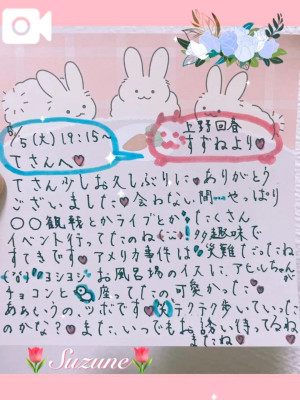 8/5(火)19:15〜
Tさんへ
上野回春
すずねより
Tさん少しお久しぶりに ありがとう
ございました 会わない間…やっぱり
〇〇観戦とかライブとか たくさん
イベント行ってたのね!多趣味で
すてきです アメリカ事件は災難だったね
ヨショシ お風呂場のイスに、アヒルちゃんが
チョコンと座ってたの可愛かった
ああいうの、ツボです テクテク歩いていった
のかな?また、いつでもお誘い待ってるね
またね
Suzune